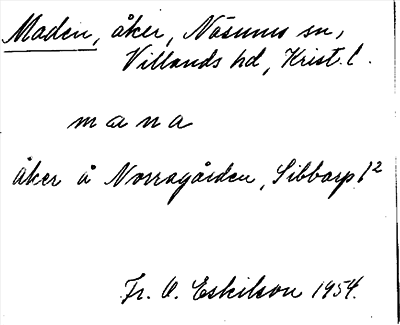 Maden, åker, Näsums sn,
Villands hd, Krist. l.
mana
åker å Norregården, Sibbarp 1²
Fr. O. Eskilson 1954.